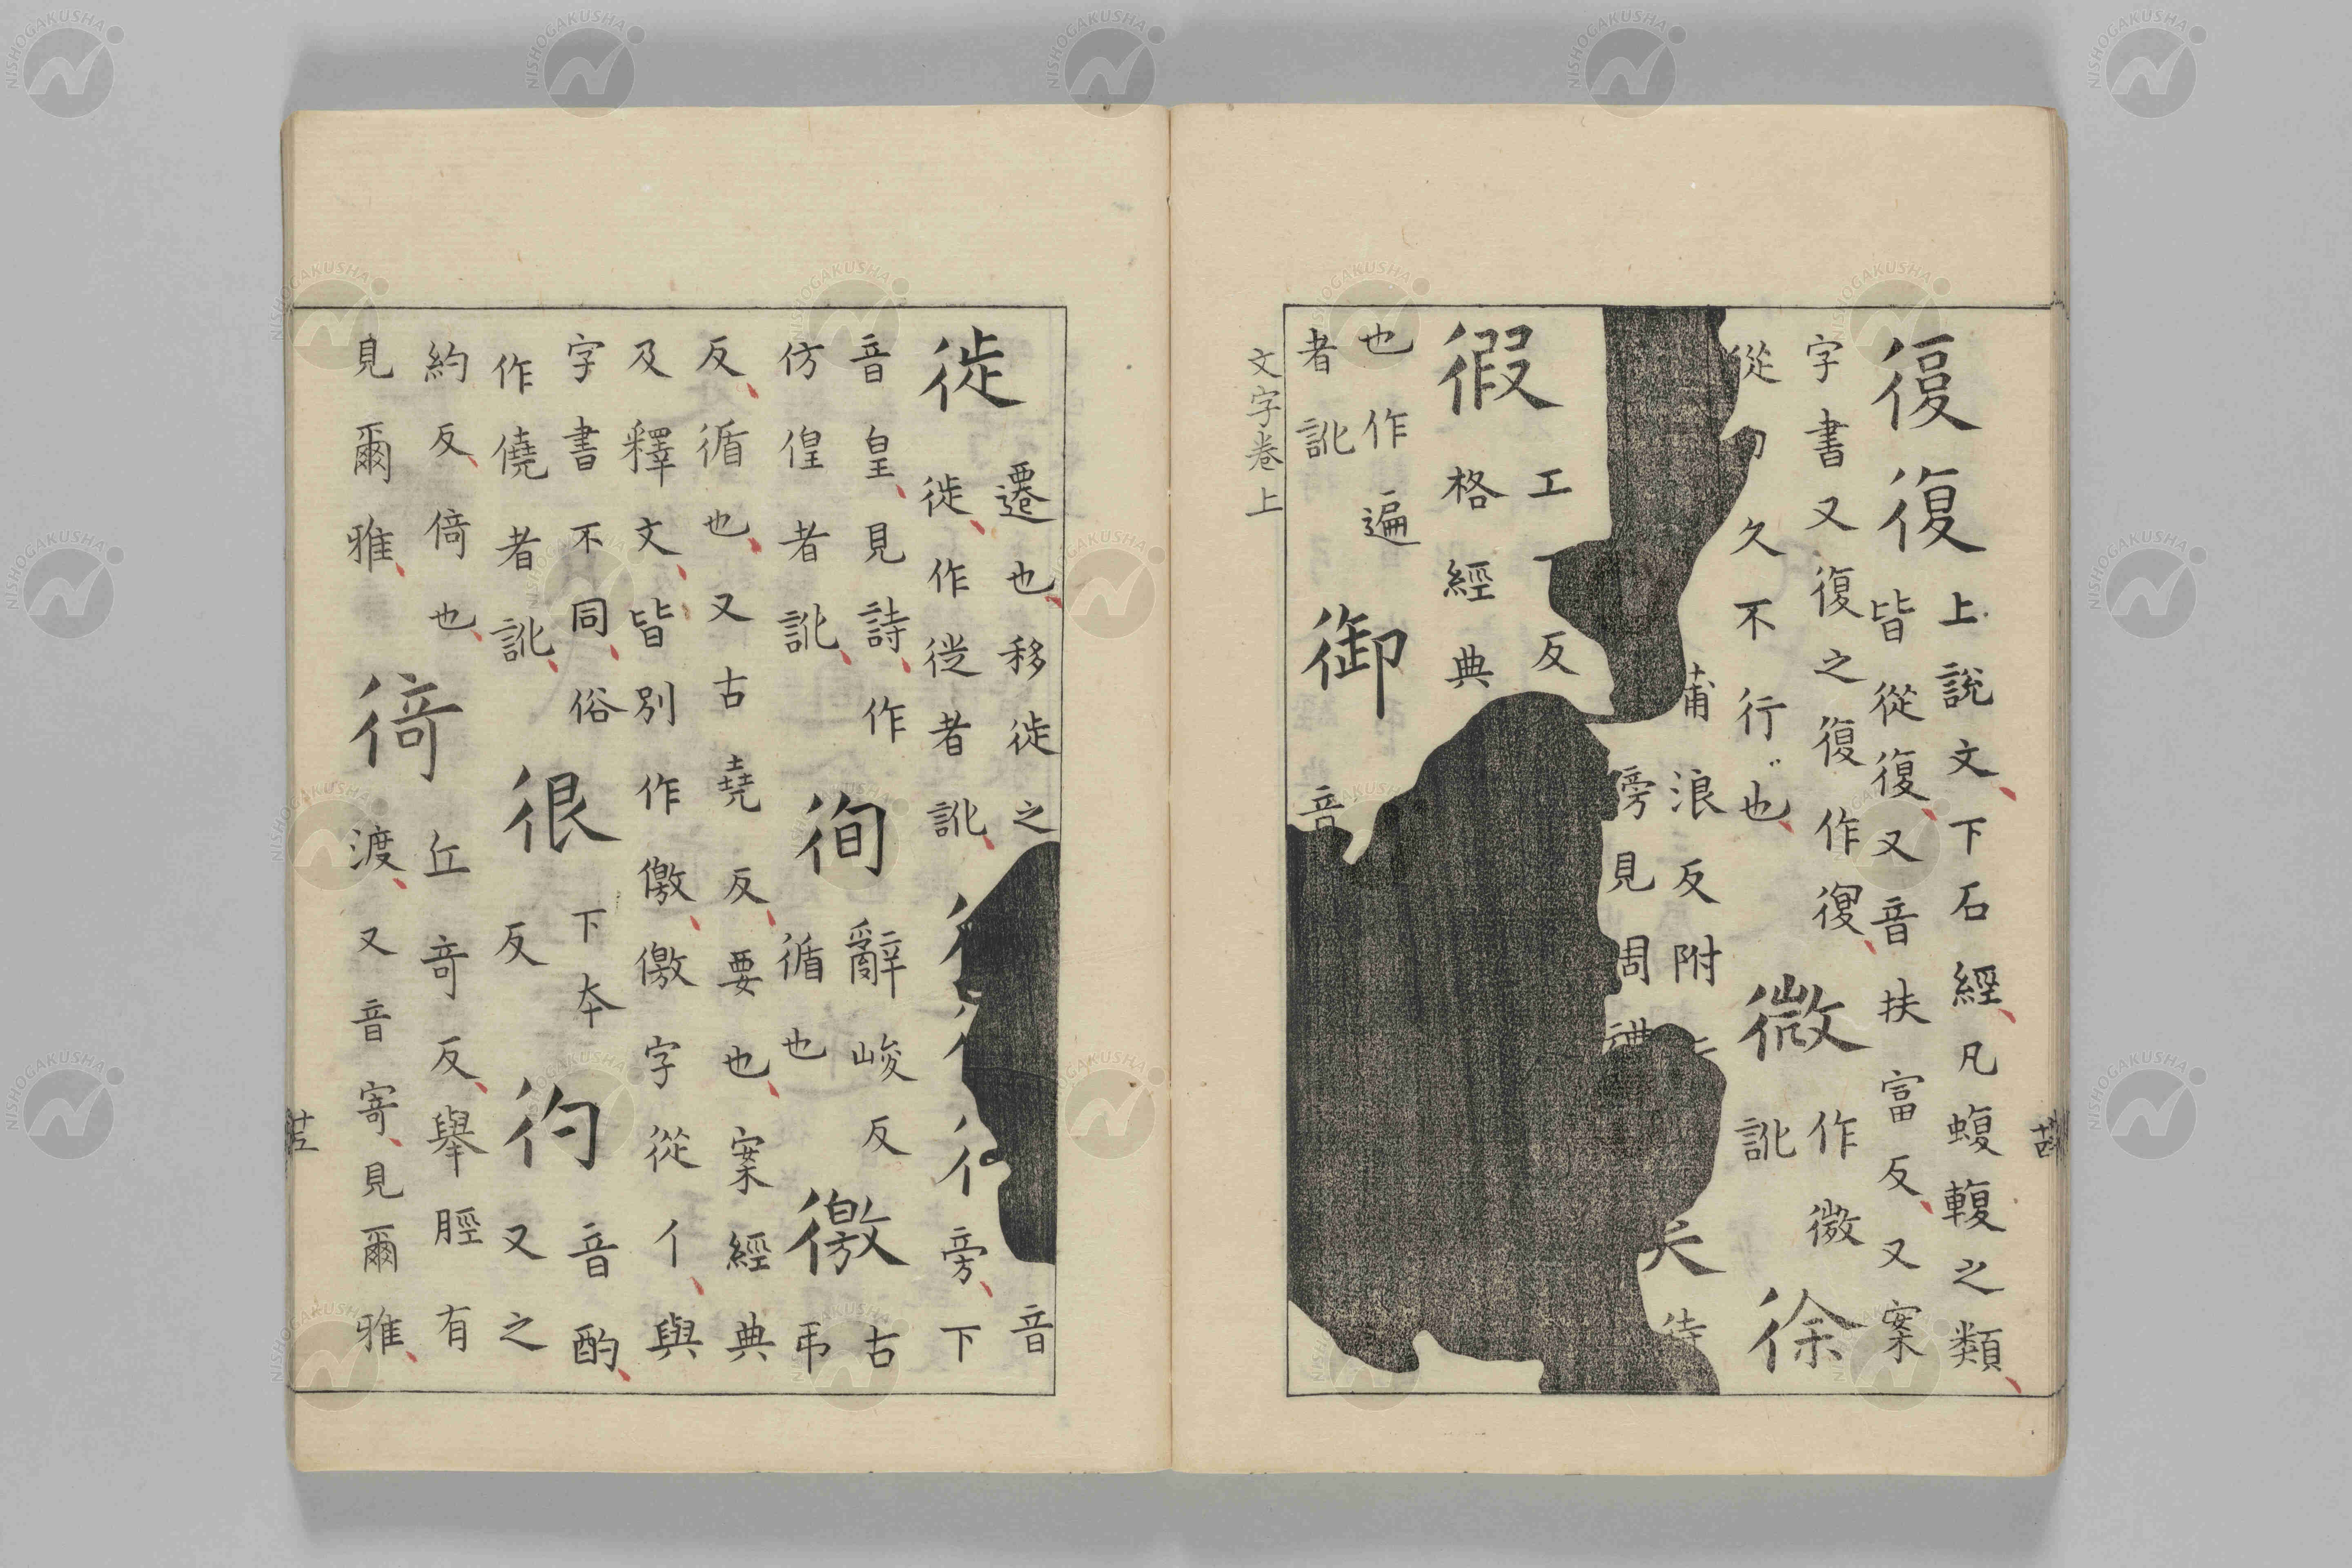 復復
上說文下石經凡蝮輹之類
皆從復又音扶富反又案
字書又復之復作復
從勹久不行也
微
作微
訛
徐
莆浪反附
傍見周禮
待
徦
工丁反
格經典
也作遍
者訛
御
音
文字卷上
徙
遷也移徙之
徙作徙者訛
音
旁下
音皇見詩作
仿偟者訛
徇
辭峻反
循也
徼
古
弔
反循也又古堯反要也案經典
及釋文皆別作儌儌字從亻與
字書不同俗
作僥者訛
很
下夲
反
彴
音酌
又之
約反倚也
見爾雅
徛
丘竒反舉脛有
渡又音寄見爾雅